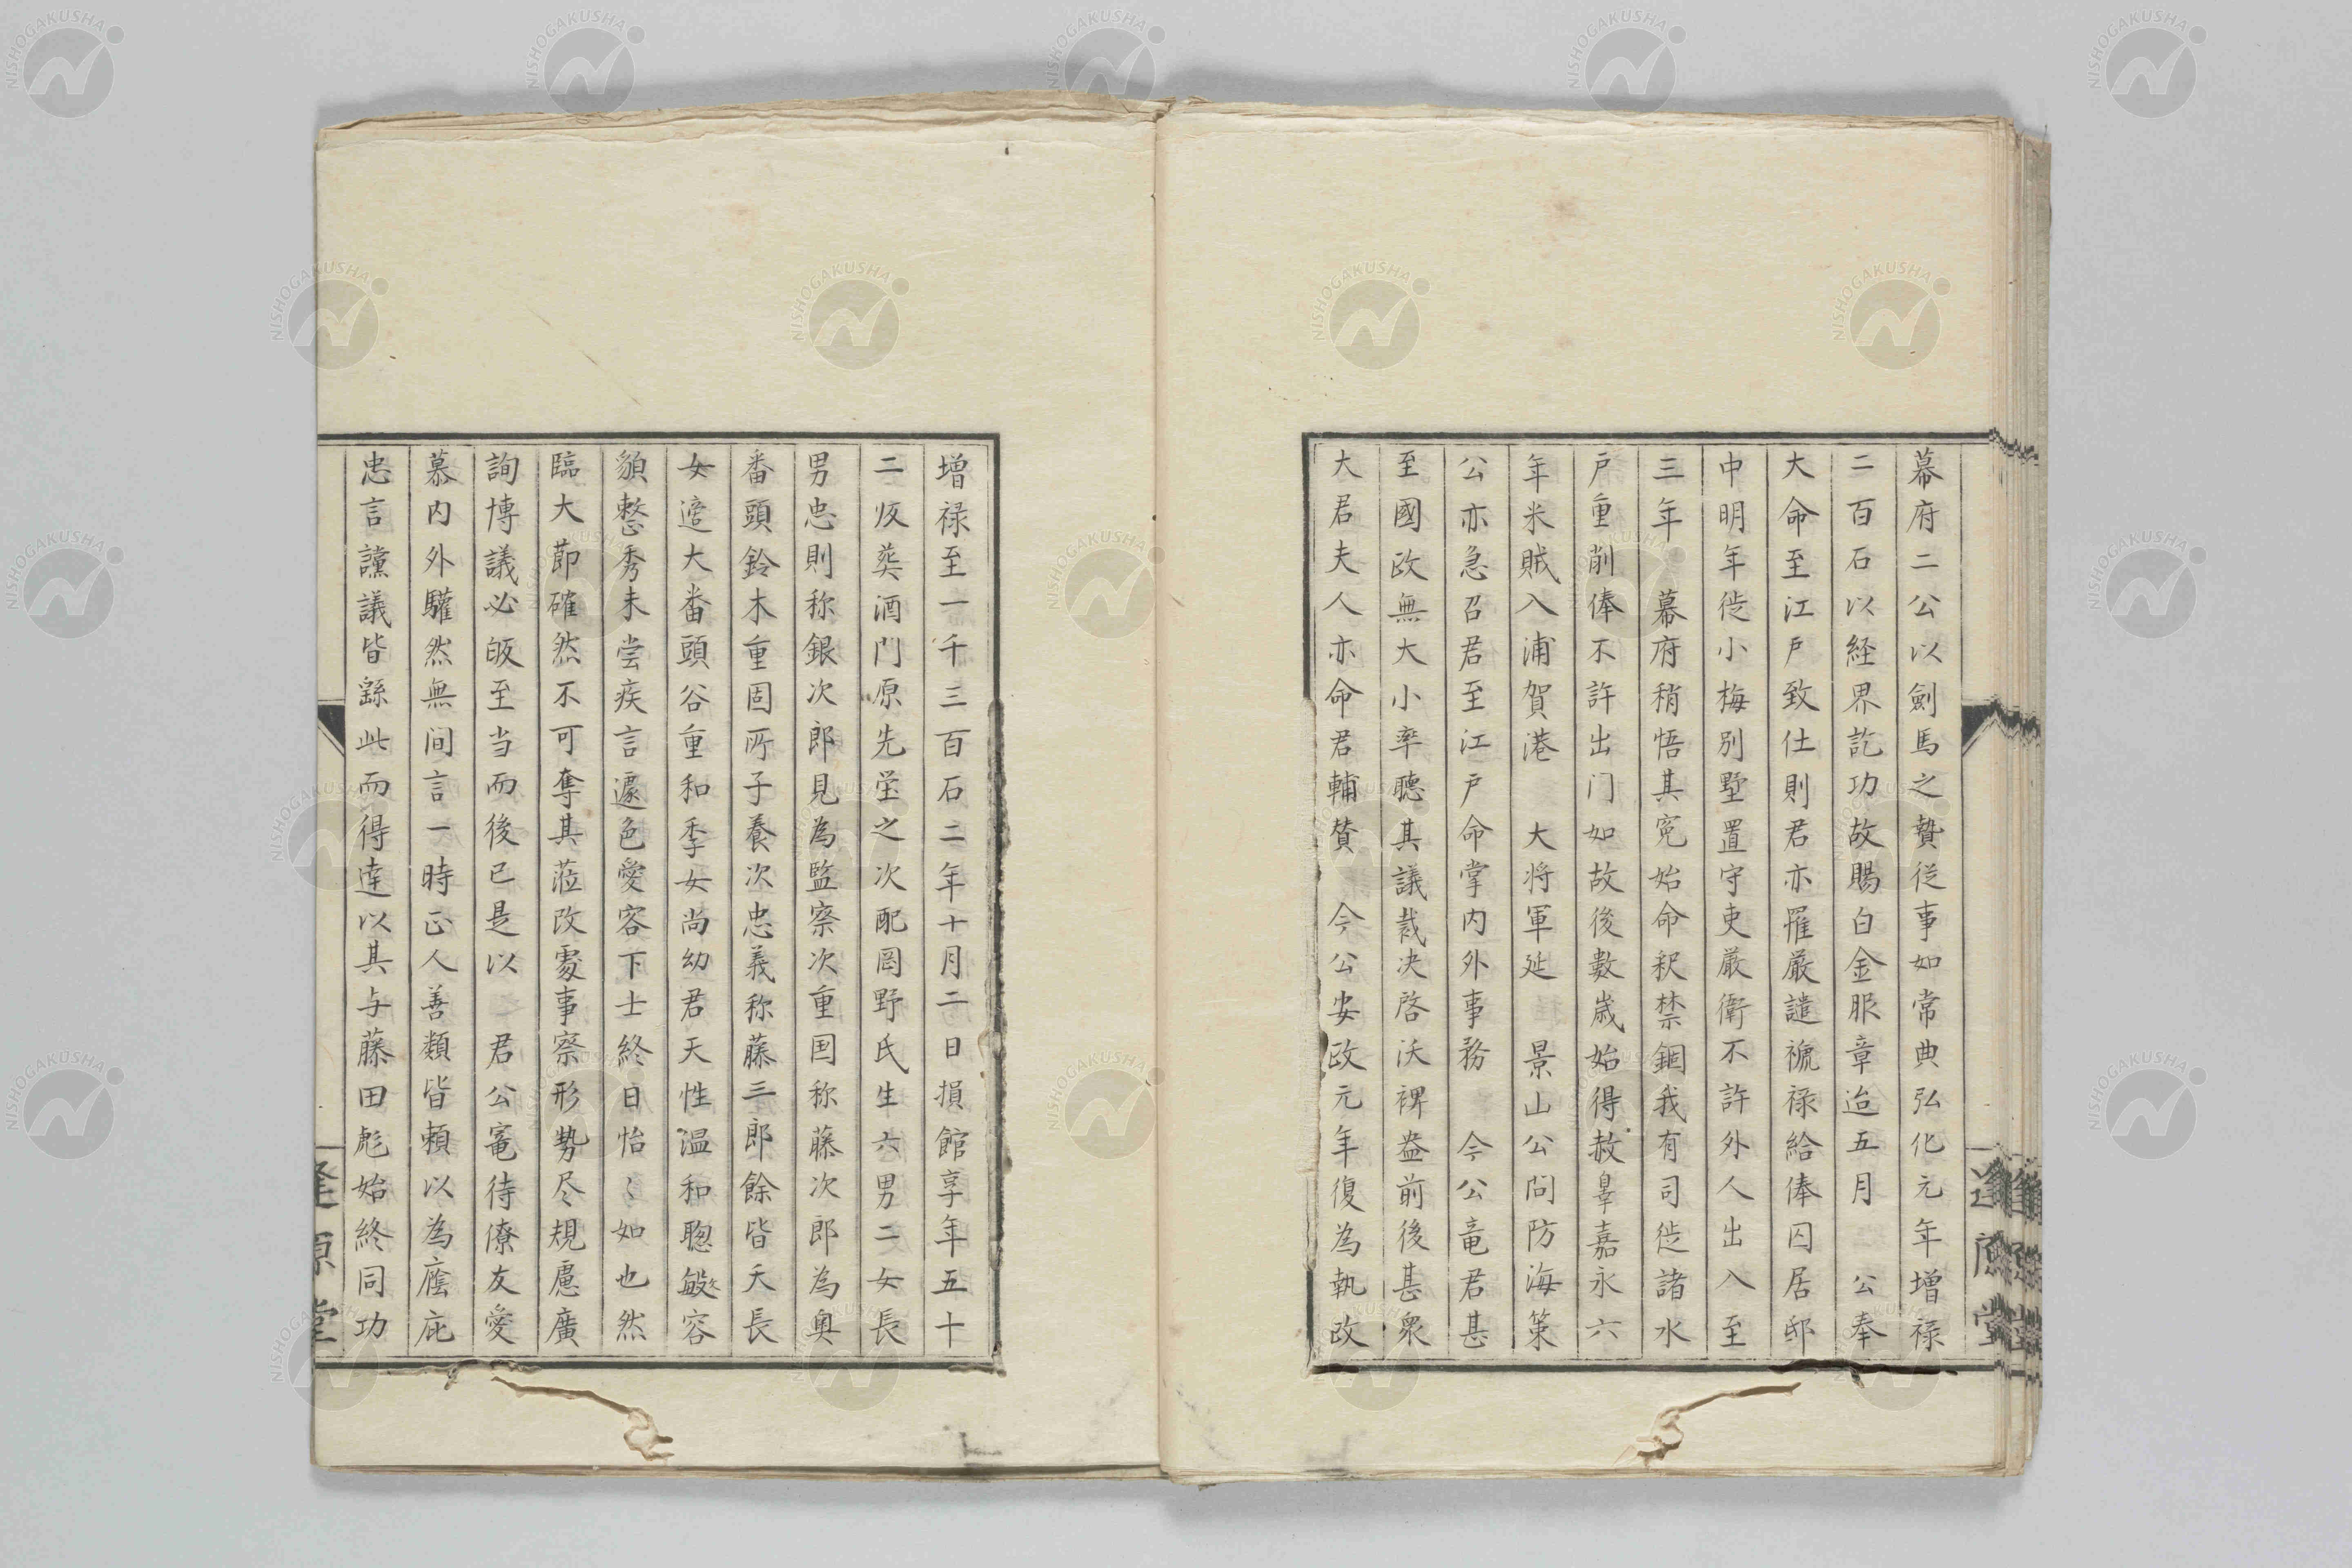 幕府二公以劍馬之贄従事如常典弘化元年增禄
二百石以経界訖功故賜白金服章迨五月　公奉
大命至江戸致仕則君亦罹厳譴褫禄給俸囚居邸
中明年徙小梅別墅置守吏厳衛不許外人出入至
三年　幕府稍悟其寃始命釈禁錮我有司徙諸水
戸重削俸不許出门如故後數歳始得赦辠嘉永六
年米賊入浦賀港　大将軍延　景山公问防海策
公亦急召君至江戸命掌内外事務　今公竜君甚
至國政無大小率聽其議裁决啓沃裨益前後甚衆
大君夫人亦命君輔賛　今公安政元年復為執政
增禄至一千三百石二年十月二日損館享年五十
二歹葬酒門原先塋之次配岡野氏生六男二女長
男忠則称銀次郎見為監察次重固称藤次郎為奥
番頭鈴木重固所子養次忠義称藤三郎餘皆夭長
女適大番頭谷重和季女尚幼君天性温和聰敏容
貌整秀未嘗疾言遽色愛容下士終日怡〻如也然
臨大節確然不可奪其蒞改處事察形勢尽規慮廣
詢博議必皈至当而後已是以　君公寵待僚友愛
慕内外驩然無间言一時正人善類皆頼以為廕庇
忠言讜議皆繇此而得達以其与藤田彪始終同功
逢原堂